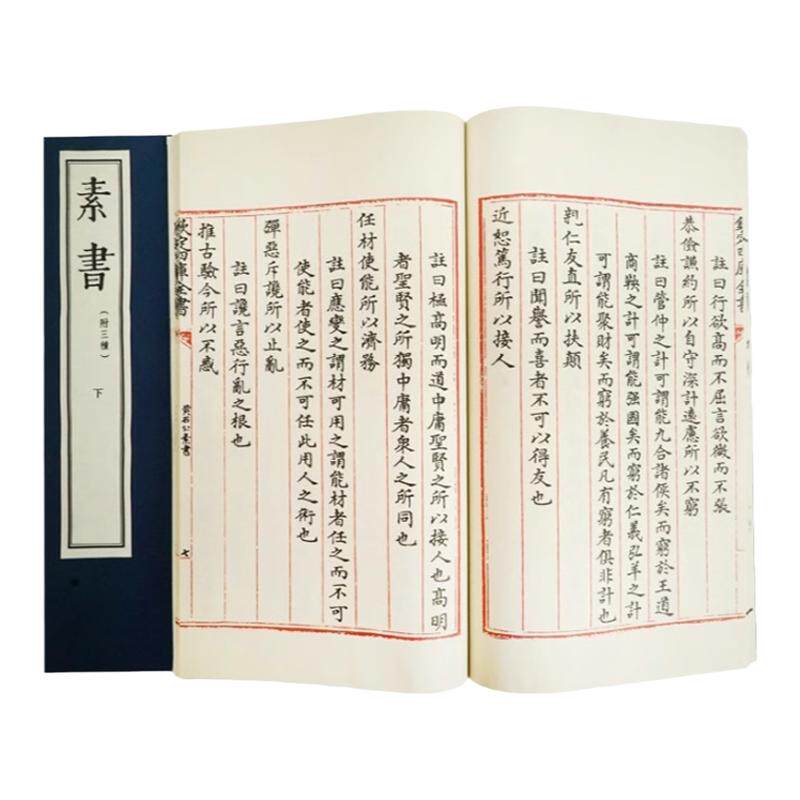 素書
(附三種)
下
欽定四庫全書
註曰行欲高而不屈言欲微而不張
恭儉謙約所以自守深計遠慮所以不窮
註曰管仲之計可謂能九合諸侯矣而窮於王道
商鞅之計可謂能强國矣而窮於仁義弘羊之計
可謂能聚財矣而窮於養民凡有窮者俱非計也
親仁友直所以扶顛
註曰聞譽而喜者不可以得友也
近恕篤行所以接人
註曰極高明而道中庸聖賢之所以接人也高明
者聖賢之所獨中庸者衆人之所同也
任材使能所以濟務
註曰應變之謂材可用之謂能材者任之而不可
使能者使之而不可任此用人之術也
殫惡斥讒所以止亂
註曰讒言惡行亂之根也
推古驗今所以不惑
欽定四庫全書
黄石公素書
七